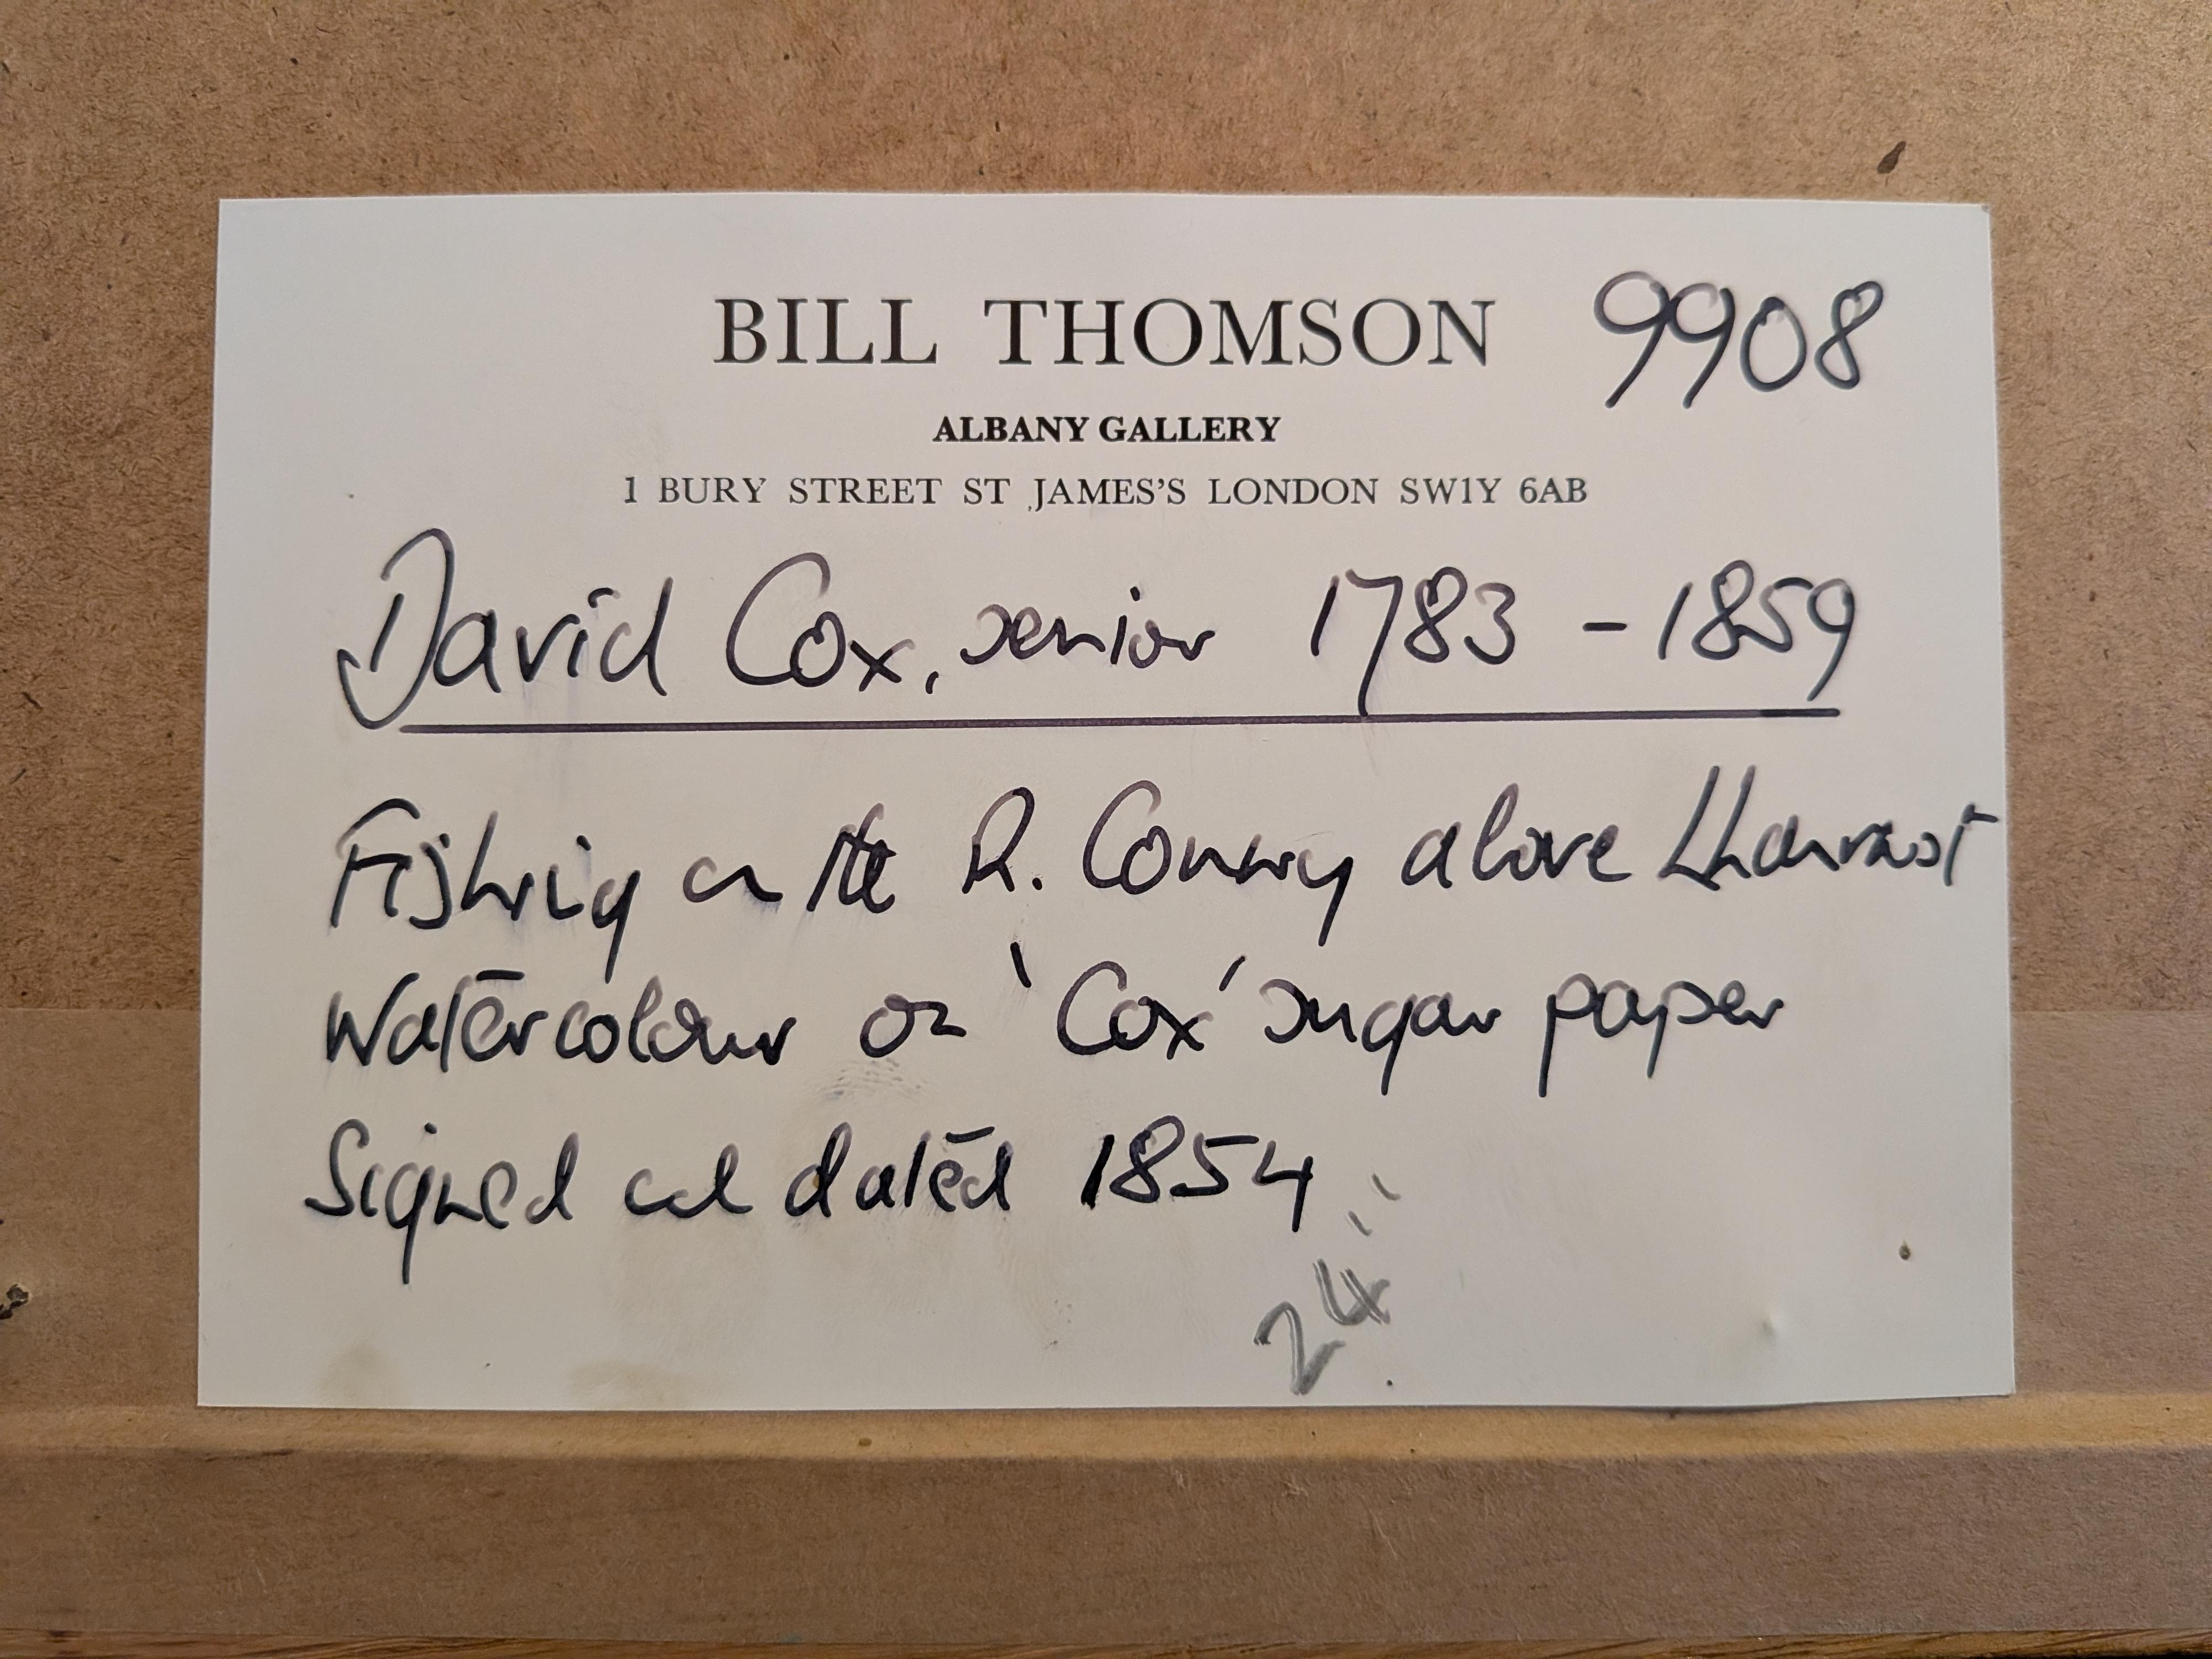 BILL THOMSON 9908
ALBANY GALLERY
1 BURY STREET ST JAMES'S LONDON SW1Y 6AB
David Cox, senior 1783 - 1859
Fishing on the R. Conway above Llanrwst
Watercolour on 'Cox' sugar paper
Signed and dated 1854
24